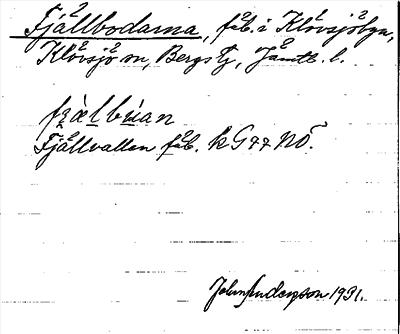 Fjällbodarna, fäb. i Klövsjöbyn,
Klövsjö sn, Bergs tg, Jämtl. l.
fjæ̀l bùan
Fjällvallen fäb. k G 77 NO.
John Anderson 1931.